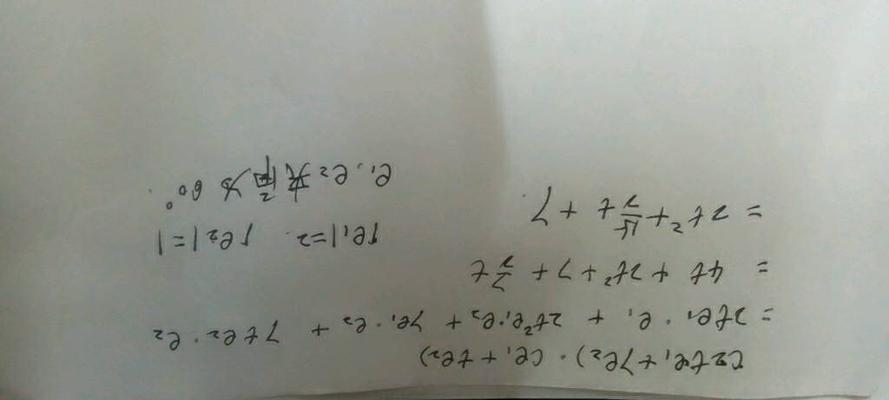 (2te₁+7e₂)·(e₁+te₂)
=2te₁·e₁ + 2t²e₁·e₂ + 7e₁·e₂ + 7te₂·e₂
= 4t + 2t² + 7 + 7/2 t
= 2t² + 15/2 t + 7
|e₁|=2 |e₂|=1
e₁,e₂夹角为60°